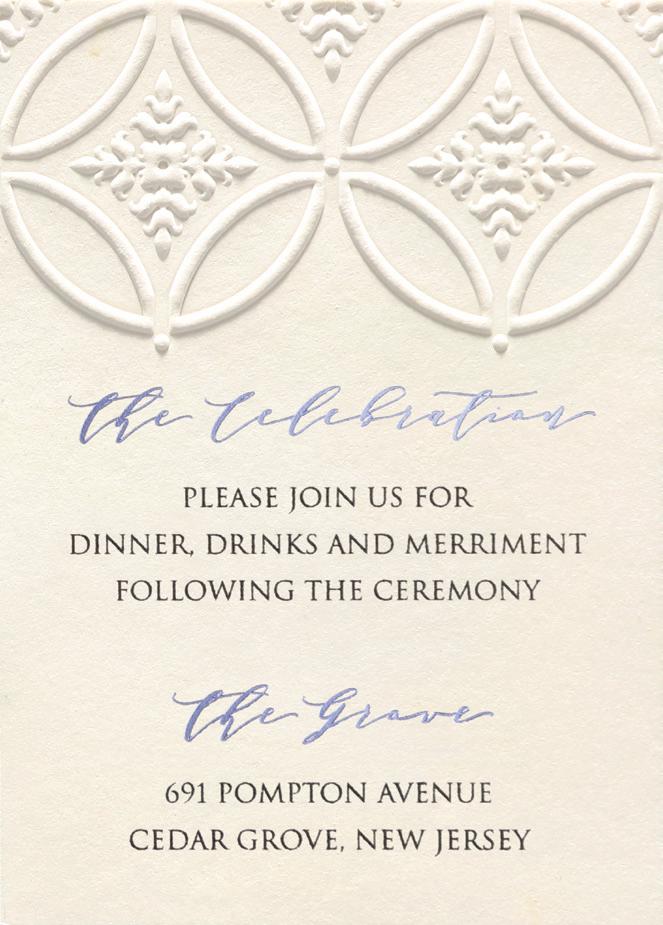 The Celebration
PLEASE JOIN US FOR
DINNER, DRINKS AND MERRIMENT
FOLLOWING THE CEREMONY
The Grove
691 POMPTON AVENUE
CEDAR GROVE, NEW JERSEY